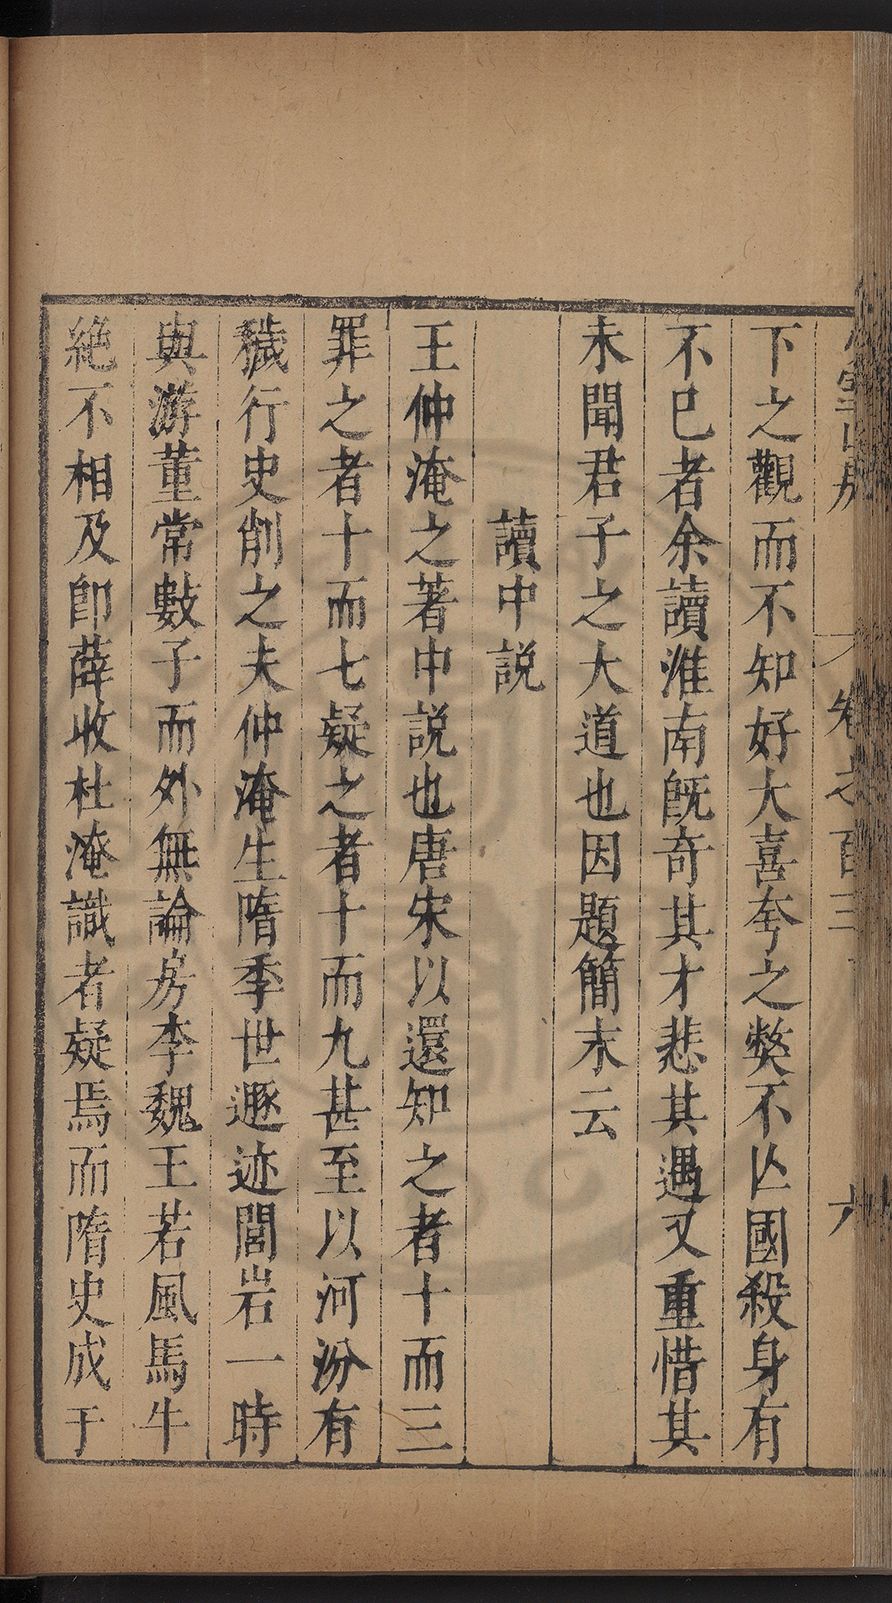 卷之百三
六
下之觀而不知好大喜夸之獘不亾國殺身有
不已者余讀淮南旣奇其才悲其遇又重惜其
未聞君子之大道也因題簡末云
讀中説
王仲淹之著中説也唐宋以還知之者十而三
罪之者十而七疑之者十而九甚至以河汾有
穢行史削之夫仲淹生隋季世遯迹閭岩一時
與游董常數子而外無論房李魏王若風馬牛
絶不相及卽薛收杜淹識者疑焉而隋史成于